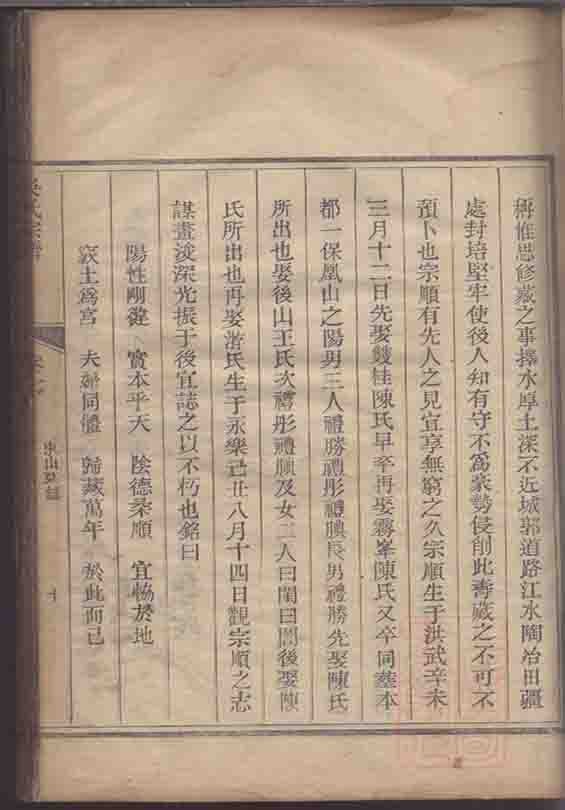 稱惟思修藏之事擇水厚土深不近城郭道路江水陶冶田疆
處封培堅牢使後人知有守不爲豪勢侵削此壽藏之不可不
預卜也宗順有先人之見宜享無窮之久宗順生于洪武辛未
三月十二日先娶雙桂陳氏早卒再娶霧峯陳氏又卒同塟本
都一保凰山之陽男三人禮勝禮彤禮腆長男禮勝先娶陳氏
所出也娶後山王氏次禮彤禮腆及女二人曰閨曰閤後娶陳
氏所出也再娶游氏生于永樂己丑八月十四日觀宗順之志
謀畫浚深光振于後宜誌之以不朽也銘曰
陽性剛健 實本乎天 陰德柔順 宜暢於地
窾土爲宮 夫婦同體 歸藏萬年 於此而已
氏宗譜
山
十